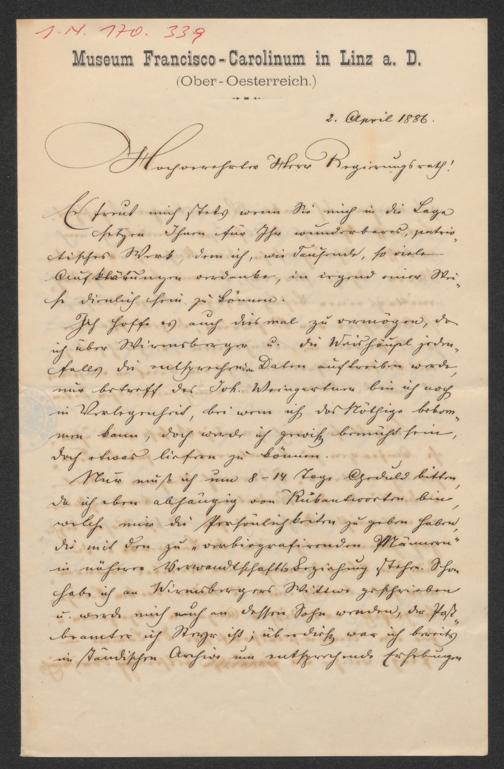 I. N. 170.339
Museum Francisco-Carolinum in Linz a. D.
(Ober-Oesterreich.)
2. April 1886.
Hochverehrter Herr Regierungsrath!
Es freut mich stets wenn Sie mich in die Lage
setzen Ihnen für Ihr wunderbares, patrio-
tisches Werk dem ich, wie Tausende, so viele
Aufklärungen verdanke, in irgend einer Wei-
se dienlich sein zu können.
Ich hoffe es auch diesmal zu vermögen, da
ich über Wirmsberger u. die jeden-
falls die entsprechenden Daten auftreiben werde,
nur betreff des Joh. Weingartner bin ich noch
in Verlegenheit, bei wem ich das Nöthige bekom-
men kann, doch werde ich gewiß bemüht sein,
doch etwas liefern zu können.
Nur muß ich um 8-14 Tage Geduld bitten,
da ich eben abhängig von Antworten bin,
welche mir die Persönlichkeiten zu geben haben,
die mit den zu „verbiografirenden Männern"
in näherer Verwandtschafts Beziehung stehen. Schon
habe ich an Wirmsbergers Wittwe geschrieben
u. werde mich auch an dessen Sohn wenden, der Post-
beamter in Steyr ist; überdieß war ich bereits
im ständischen Archive um entsprechende Erhebungen